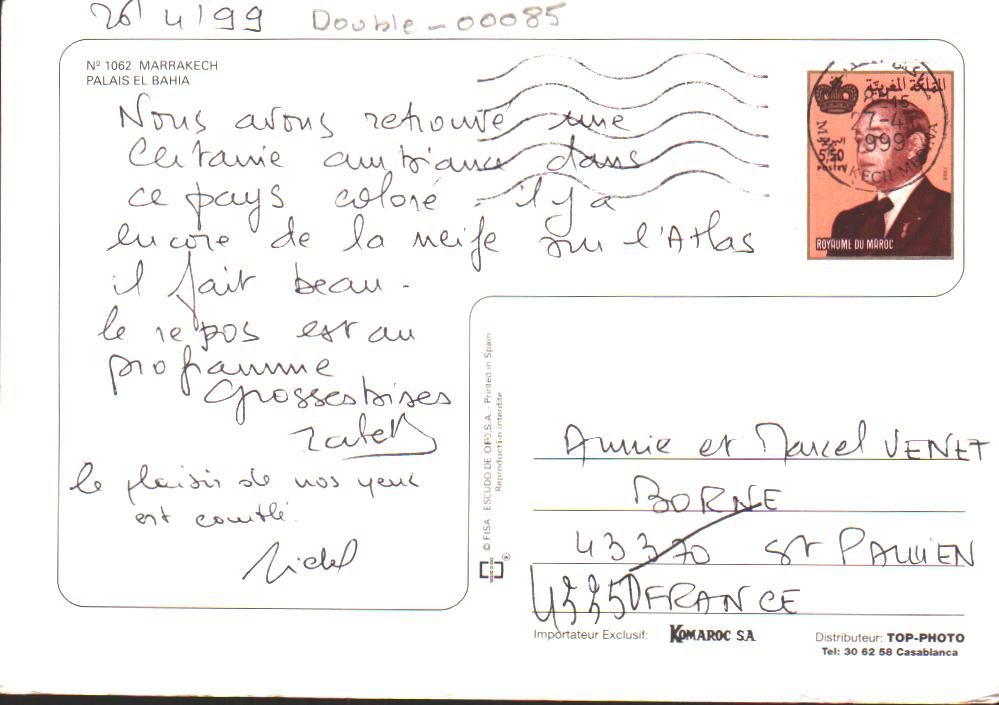 26/4/99 Double-00085
Nº 1062 MARRAKECH
PALAIS EL BAHIA
Nous avons retrouvé une
certaine ambiance dans
ce pays coloré. il y a
encore de la neige sur l'Atlas
il fait beau.
le repos est au
programme
Grosses bises
le plaisir de nos yeux
est comblé.
Michel
المملكة المغربية
البريد
5,50
POSTES
ROYAUME DU MAROC
27-4
1999
© FISA ESCUDO DE ORO, S.A. - Printed in Spain
Reproduction interdite
Annie et Marcel VENET
BORNE
43370 St PAULIEN
43350 FRANCE
Importateur Exclusif: KOMAROC S.A
Distributeur: TOP-PHOTO
Tel: 30 62 58 Casablanca